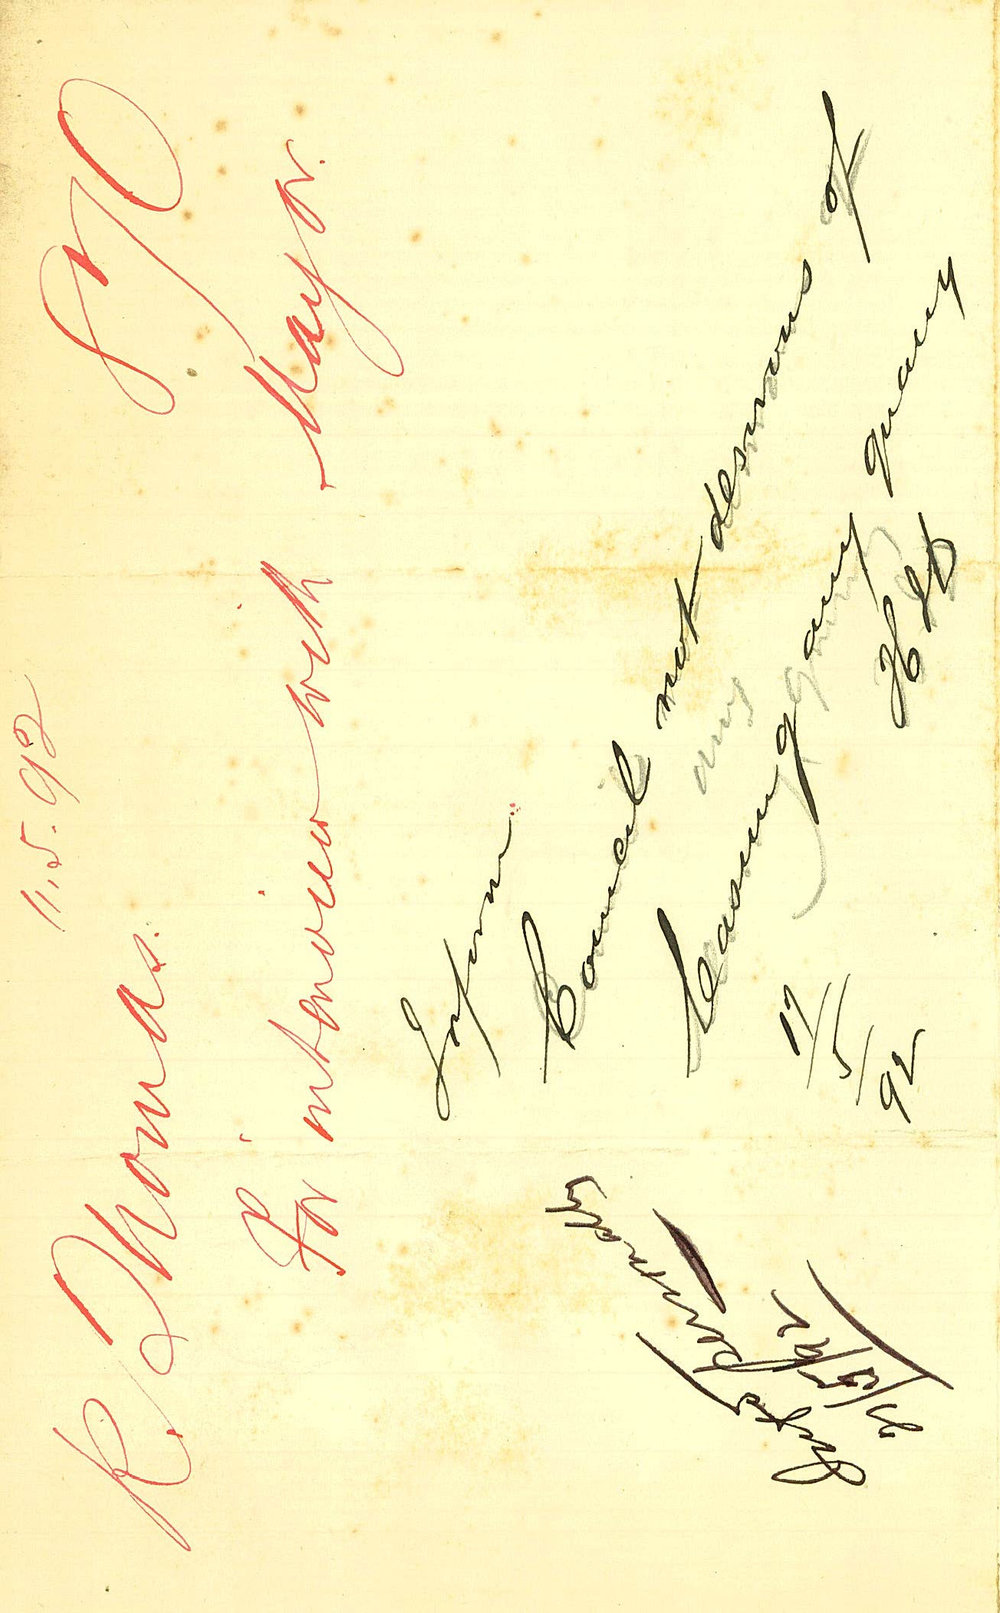 11.5.92
R. Thomas.
For interview with Mayor.
Inform
Council not desirous of
any
leasing any quarry
17/5/92
Infd personally
21/5/92